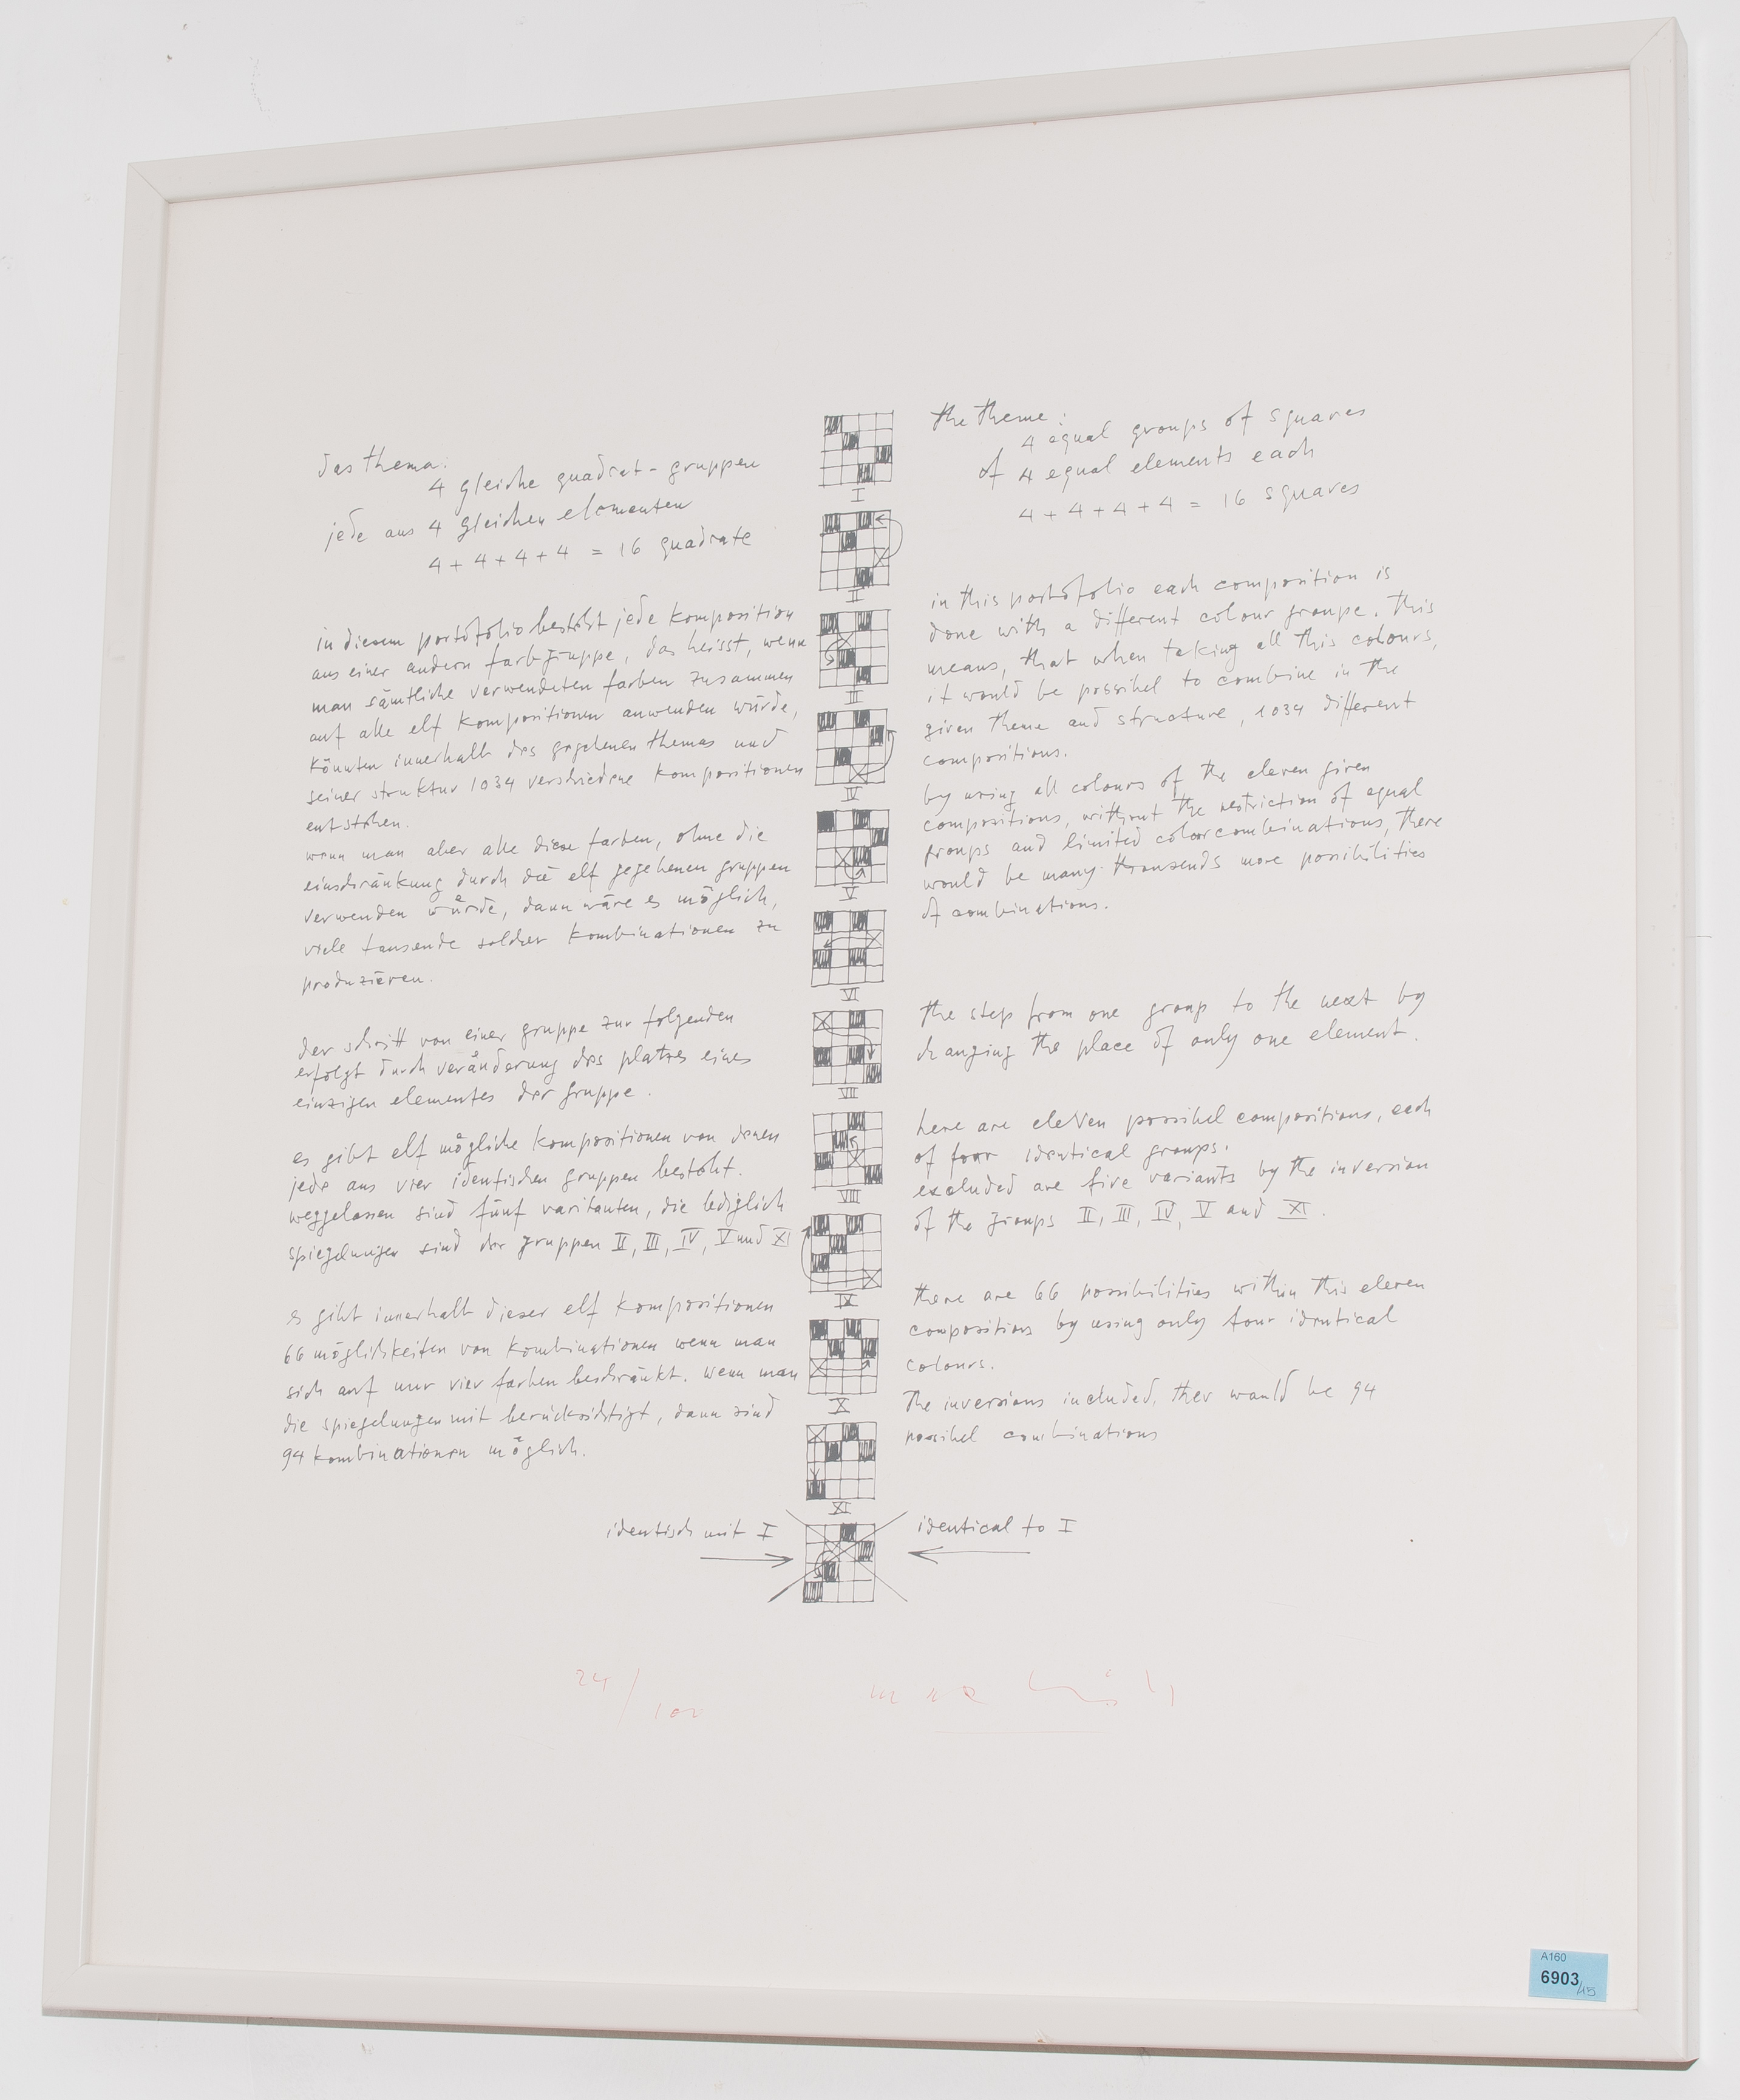 das thema:
4 gleiche quadrat-gruppen
jede aus 4 gleichen elementen
4+4+4+4 = 16 quadrate
in diesem portofolio besteht jede komposition
aus einer andern farbgruppe, das heisst, wenn
man sämtliche verwendeten farben zusammen
auf alle elf kompositionen anwenden würde,
könnten innerhalb des gegebenen themas und
seiner struktur 1034 verschiedene kompositionen
entstehen.
wenn man aber alle diese farben, ohne die
einschränkung durch die elf gegebenen gruppen
verwenden würde, dann wäre es möglich,
viele tausende solcher kombinationen zu
produzieren.
der schritt von einer gruppe zur folgenden
erfolgt durch veränderung des platzes eines
einzigen elementes der gruppe.
es gibt elf mögliche kompositionen von denen
jede aus vier identischen gruppen besteht.
weggelassen sind fünf varitanten, die lediglich
spiegelungen sind der gruppen II, III, IV, V und XI
es gibt innerhalb dieser elf kompositionen
66 möglichkeiten von kombinationen wenn man
sich auf nur vier farben beschränkt. wenn man
die spiegelungen mit berücksichtigt, dann sind
94 kombinationen möglich.
I
II
III
IV
V
VI
VII
VIII
IX
X
XI
the theme:
4 equal groups of squares
of 4 equal elements each
4+4+4+4 = 16 squares
in this portofolio each composition is
done with a different colour groupe. this
means, that when taking all this colours,
it would be possibel to combine in the
given theme and structure, 1034 different
compositions.
by using all colours of the eleven given
compositions, without the restriction of equal
groups and limited colorcombinations, there
would be many thousends more possibilities
of combinations.
the step from one group to the next by
changing the place of only one element.
here are eleven possibel compositions, each
of four identical groups.
excluded are five variants by the inversion
of the groups II, III, IV, V and XI.
there are 66 possibilities within this eleven
compositions by using only four identical
colours.
the inversions included, ther would be 94
possibel combinations
identisch mit I
identical to I
24/100
max bill
A160
6903/15